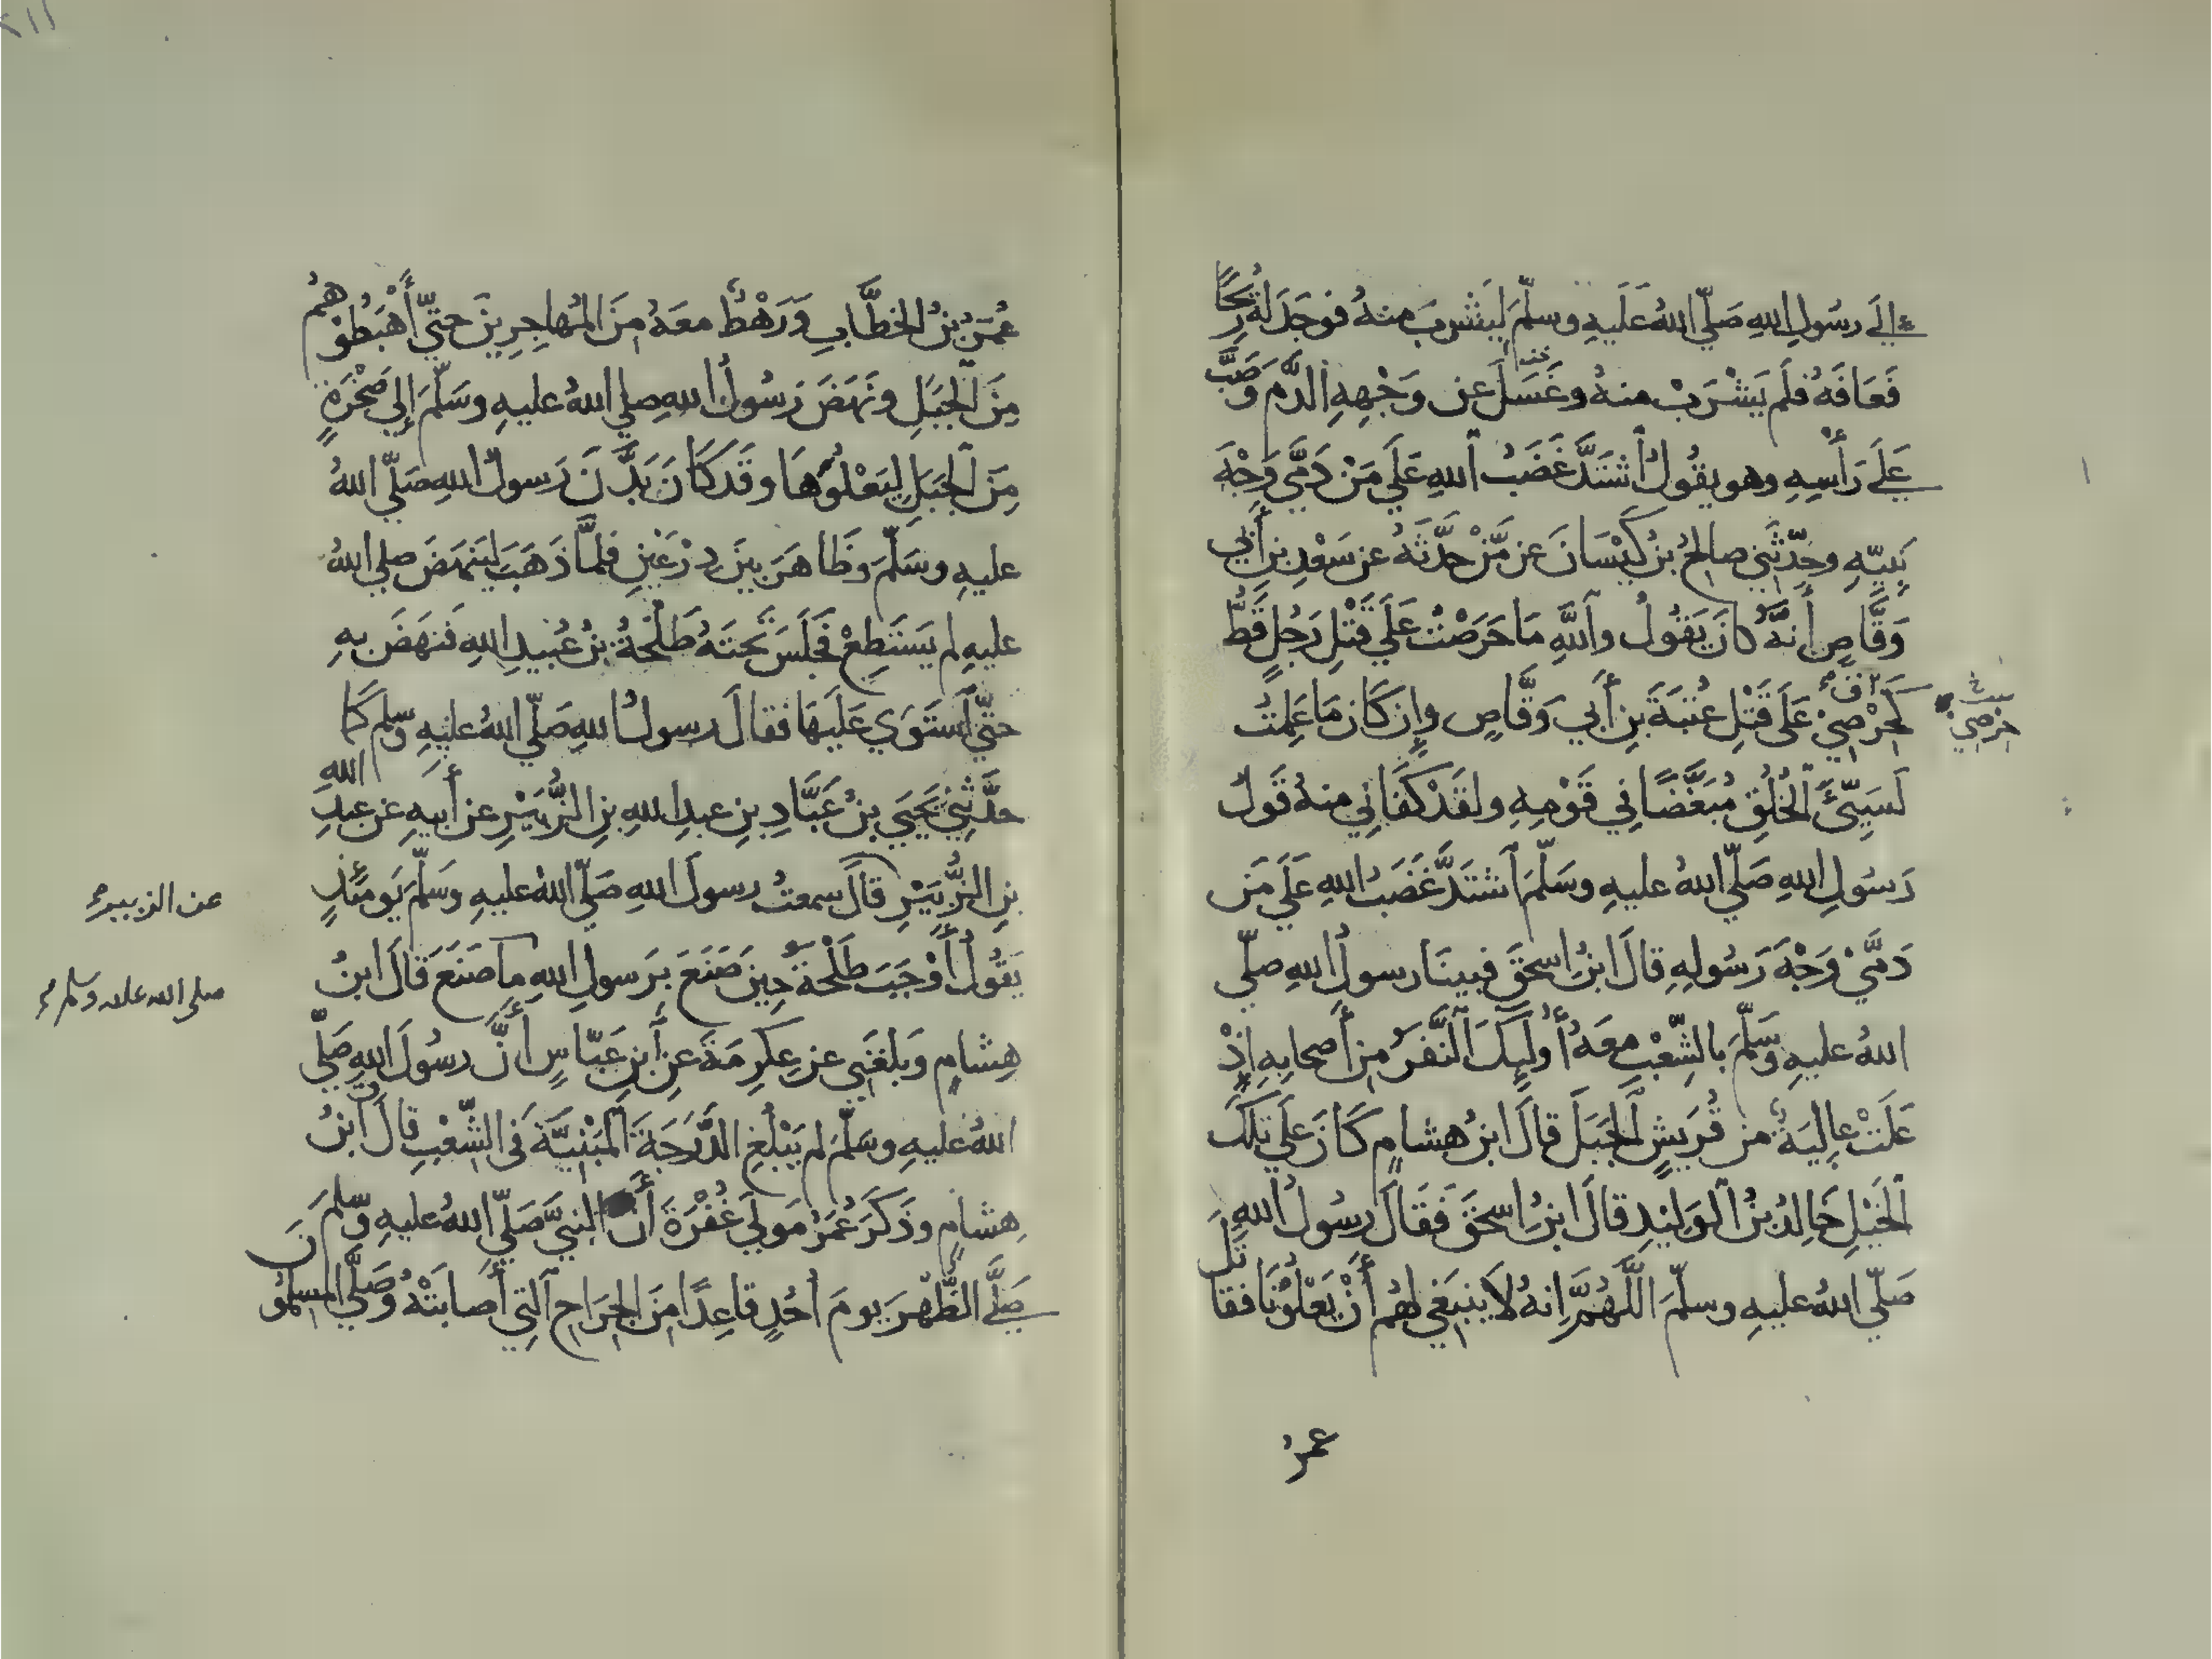 إلَي رسُولِ اللهِ صَلّي اللهُ عَلَيهِ وسلّمَ لِيَشْرِبَ منهُ فوجَدَ لهُ رِيحًا
فَعَافَهُ فلَم يَشْرَبْ منهُ وغَسَلَ عن وَجْهِهِ الدَّم وَصَبَّ
عَلَي رَأْسِهِ وهو يقُولُ ٱشتَدَّ غَضَبُ ٱللهِ عَلَي مَنْ دَمَّي وَجْهَ
نَبِيّهِ وحدّثَنِي صالحُ بنُ كَيْسَانَ عن مَّنْ حدَّثَهُ عن سَعْدِ بنِ أَبِي
وَقَّاصٍ أَنهُ كانَ يَقُولُ وٱللّهِ مَا حَرَصْتُ عَلَي قَتْلِ رَجُلٍ قَطُّ
كَحِرْصِي عَلَي قَتْلِ عُتبَةَ بنِ أَبي وَقَّاصٍ وإِن كَانَ مَا عَلِمتُ
حرْصِي
لَسَيِّئَ ٱلخُلُقِ مُبَغَّضًا في قَوْمِهِ ولقَدْ كَفَانِي منهُ قَولُ
رَسُولِ اللهِ صَلّي اللهُ عليهِ وسَلّمَ ٱشتَدَّ غَضَبُ اللهِ عَلَي مَن
دَمَّيْ وَجْهَ رَسُولِهِ قالَ ابنُ اسحقَ فبينَا رسولُ اللهِ صلّي
اللهُ عليهِ وسَلّمَ بالشِّعْبِ معَهُ أُولَئِكَ ٱلنَّفَرُ مِن أَصحابِهِ إذْ
عَلَتْ عالِيَةٌ من قُرَيشٍ ٱلجَبَلَ قالَ ابنُ هشامٍ كَانَ عَلَي تلكَ
ٱلخَيْلِ خَالِدُ بنُ ٱلوَليدِ قالَ ابنُ اسحقَ فَقَالَ رسُولُ اللهِ
صَلّي اللهُ عليهِ وسلّمَ اللَّهُمَّ إنهُ لاَ ينبَغي لهُم أَنْ يَعْلُوْنَا فقاتَلَ
عمرُ
عُمَرُ بنُ الخطَّابِ وَرَهْطٌ معَهُ مِنَ المُهاجِرِينَ حتّي أَهْبَطُوْهُمْ
مِنَ ٱلجَبَلِ ونَهَضَ رَسُولُ اللهِ صلي اللهُ عليهِ وسَلّمَ إلي صَخْرَةٍ
مِنَ ٱلجَبَلِ لِيَعْلُوَهَا وقَد كَانَ بَدَّنَ رَسولُ اللهِ صَلّي اللهُ
عليهِ وسَلّمَ وظَاهَرَ بينَ دِرْعَيْنِ فلمَّا ذَهَبَ ليَنهَضَ صلي اللهُ
عليهِ لم يَستَطِعْ فجَلَسَ تحتَهُ طَلْحَةُ بنُ عُبَيدِ اللهِ فنَهَضَ بهِ
حتّي ٱستَوَي عَلَيهَا فقالَ رسولُ اللهِ صَلّي اللهُ عليهِ وسلم كَمَا
حدَّثَنِي يَحْيَي بنُ عَبَّادِ بنِ عبدِ اللهِ بنِ الزُّبَيْرِ عن أَبيهِ عن عبدِ اللهِ
بنِ الزُّبَيْرِ قالَ سمعتُ رسولَ اللهِ صَلّي اللهُ عليهِ وسَلّمَ يَومَئذٍ
عن الزبير
يَقُولُ أَوْجَبَ طَلْحَةُ حِينَ صَنَعَ بِرَسولِ اللهِ ما صَنَعَ قَالَ ابنُ
صلى الله عليه وسلم
هِشامٍ وَبلغَنِي عن عِكرِمَةَ عنِ ٱبنِ عَبّاسٍ أَنَّ رسُولَ اللهِ صَلّي
اللهُ عليهِ وسَلّمَ لم يَبْلُغِ الدَّرَجَةَ ٱلمَبْنِيَّةَ في الشِّعْبِ قالَ ابنُ
هِشامٍ وذَكَرَ عُمَرُ مَولَي غُفْرَةَ أَنَّ النبيَّ صَلّي اللهُ عليهِ وسّلمَ
صَلَّي الظُّهْرَ يومَ أُحُدٍ قاعِدًا مِنَ الجِرَاحِ ٱلتِي أَصابَتْهُ وصَلَّي المسلمُونَ